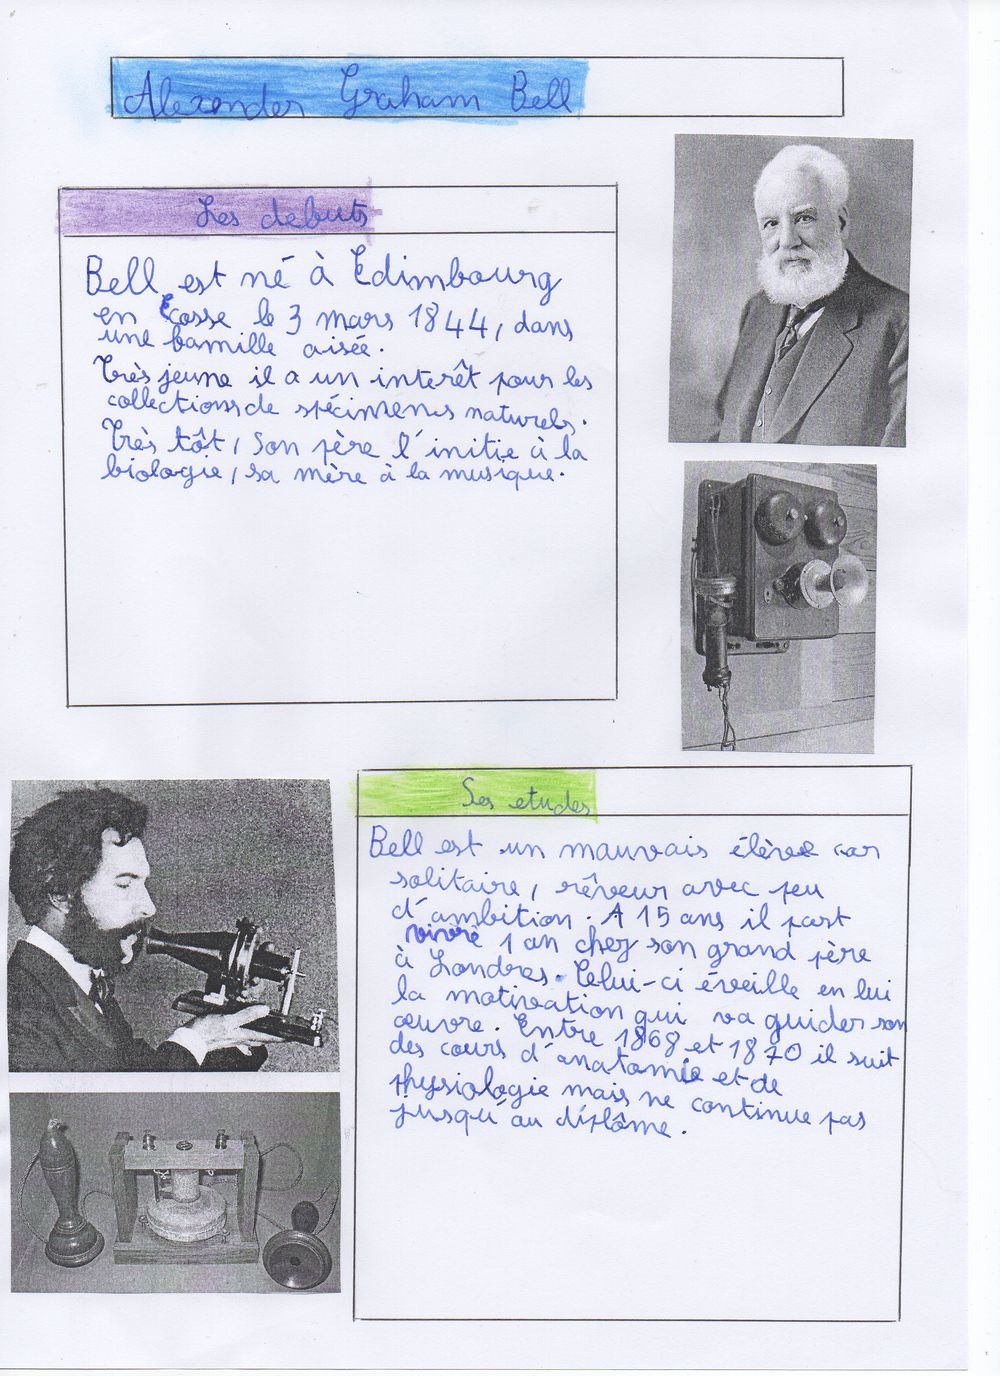 Alexander Graham Bell
Les debuts
Bell est né à Edimbourg
en Ecosse le 3 mars 1844, dans
une famille aisée.
Très jeune il a un interêt pour les
collections de spécimens naturels.
Très tôt, son père l'initie à la
biologie, sa mère à la musique.
Ses etudes
Bell est un mauvais élève car
solitaire, rêveur avec peu
d'ambition. A 15 ans il part
vivre 1 an chez son grand père
à Londres. Celui-ci éveille en lui
la motivation qui va guider son
œuvre. Entre 1868 et 1870 il suit
des cours d'anatomie et de
physiologie mais ne continue pas
jusqu'au diplôme.